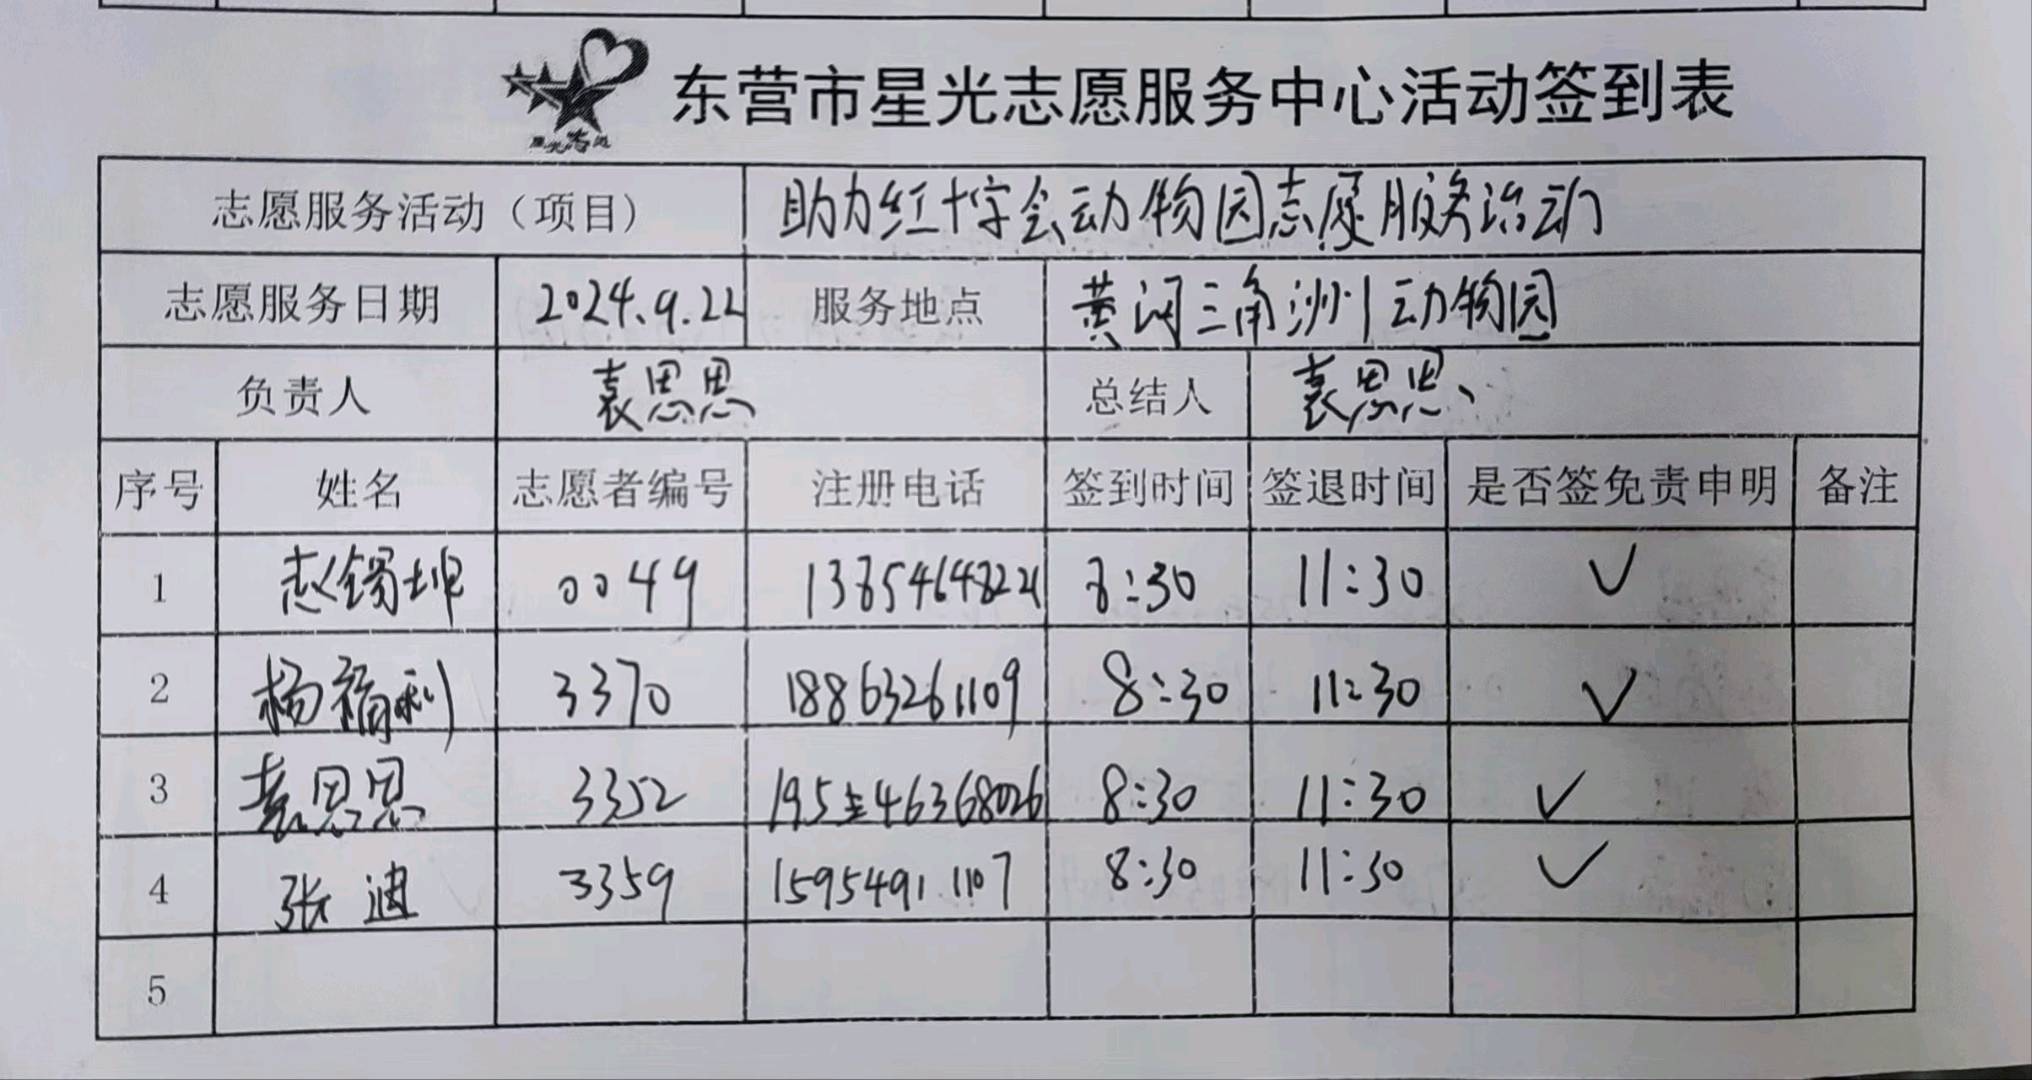 东营市星光志愿服务中心活动签到表
志愿服务活动（项目） 助力红十字会动物园志愿服务活动
志愿服务日期 2024.9.22 服务地点 黄河三角洲动物园
负责人 袁思思 总结人 袁思思
序号 姓名 志愿者编号 注册电话 签到时间 签退时间 是否签免责申明 备注
1 赵锡坤 0049 13854648221 8:30 11:30 ✓
2 杨福利 3370 18863261109 8:30 11:30 ✓
3 袁思思 3352 8:30 11:30 ✓
4 张迪 3359 15954911107 8:30 11:30 ✓
5